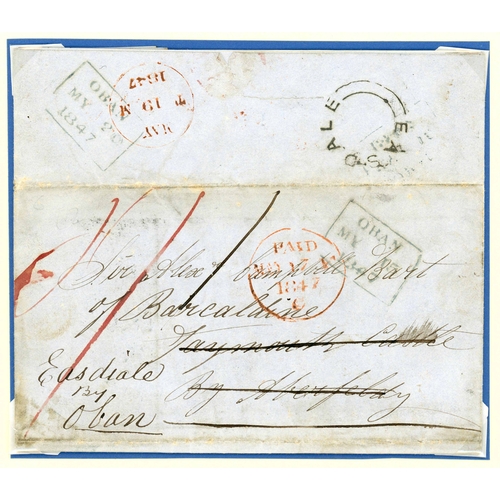 OBAN
MY 20
1847
1847
M 19 T
MAY
EASDALE
OBAN
MY
1847
PAID
1847
Sir Alexr Campbell Bart
of Barcaldine
Taymouth Castle
By Aberfeldy
Easdiale
By
Oban